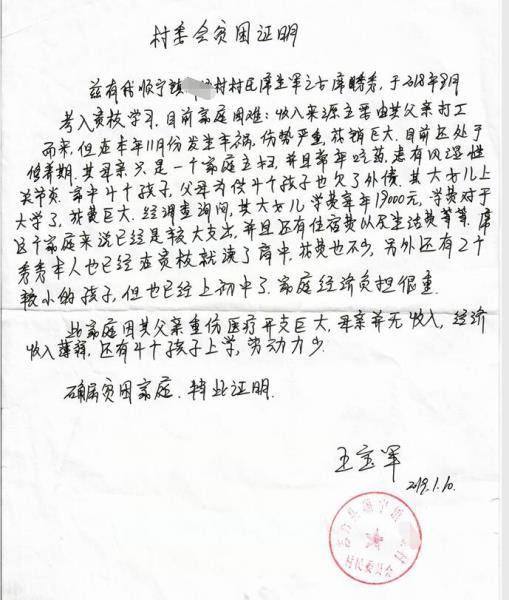 村委会贫困证明
兹有我顺宁镇 村村民席生军之女席秀秀,于2018年8月
考入贵校学习.目前家庭困难:收入来源主要由其父亲打工
而来,但在本年11月份发生车祸,伤势严重,花销巨大.目前还处于
修养期.其母亲只是一个家庭主妇,并且常年吃药,患有风湿性
关节炎.家中4个孩子,父母为供4个孩子也欠了外债.其大女儿上
大学了,花费巨大.经调查询问,其大女儿学费每年19000元,学费对于
这个家庭来说已经是较大支出,并且还有住宿费以及生活费等等.席
秀秀本人也已经在贵校就读了高中.花费也不少,另外还有2个
较小的孩子,但也已经上初中了.家庭经济负担很重.
此家庭因其父亲重伤医疗开支巨大,母亲并无收入,经济
收入薄弱.还有4个孩子上学,劳动力少.
确属贫困家庭.特此证明.
王宝军
2019.1.10.
县顺宁镇 村
村民委员会